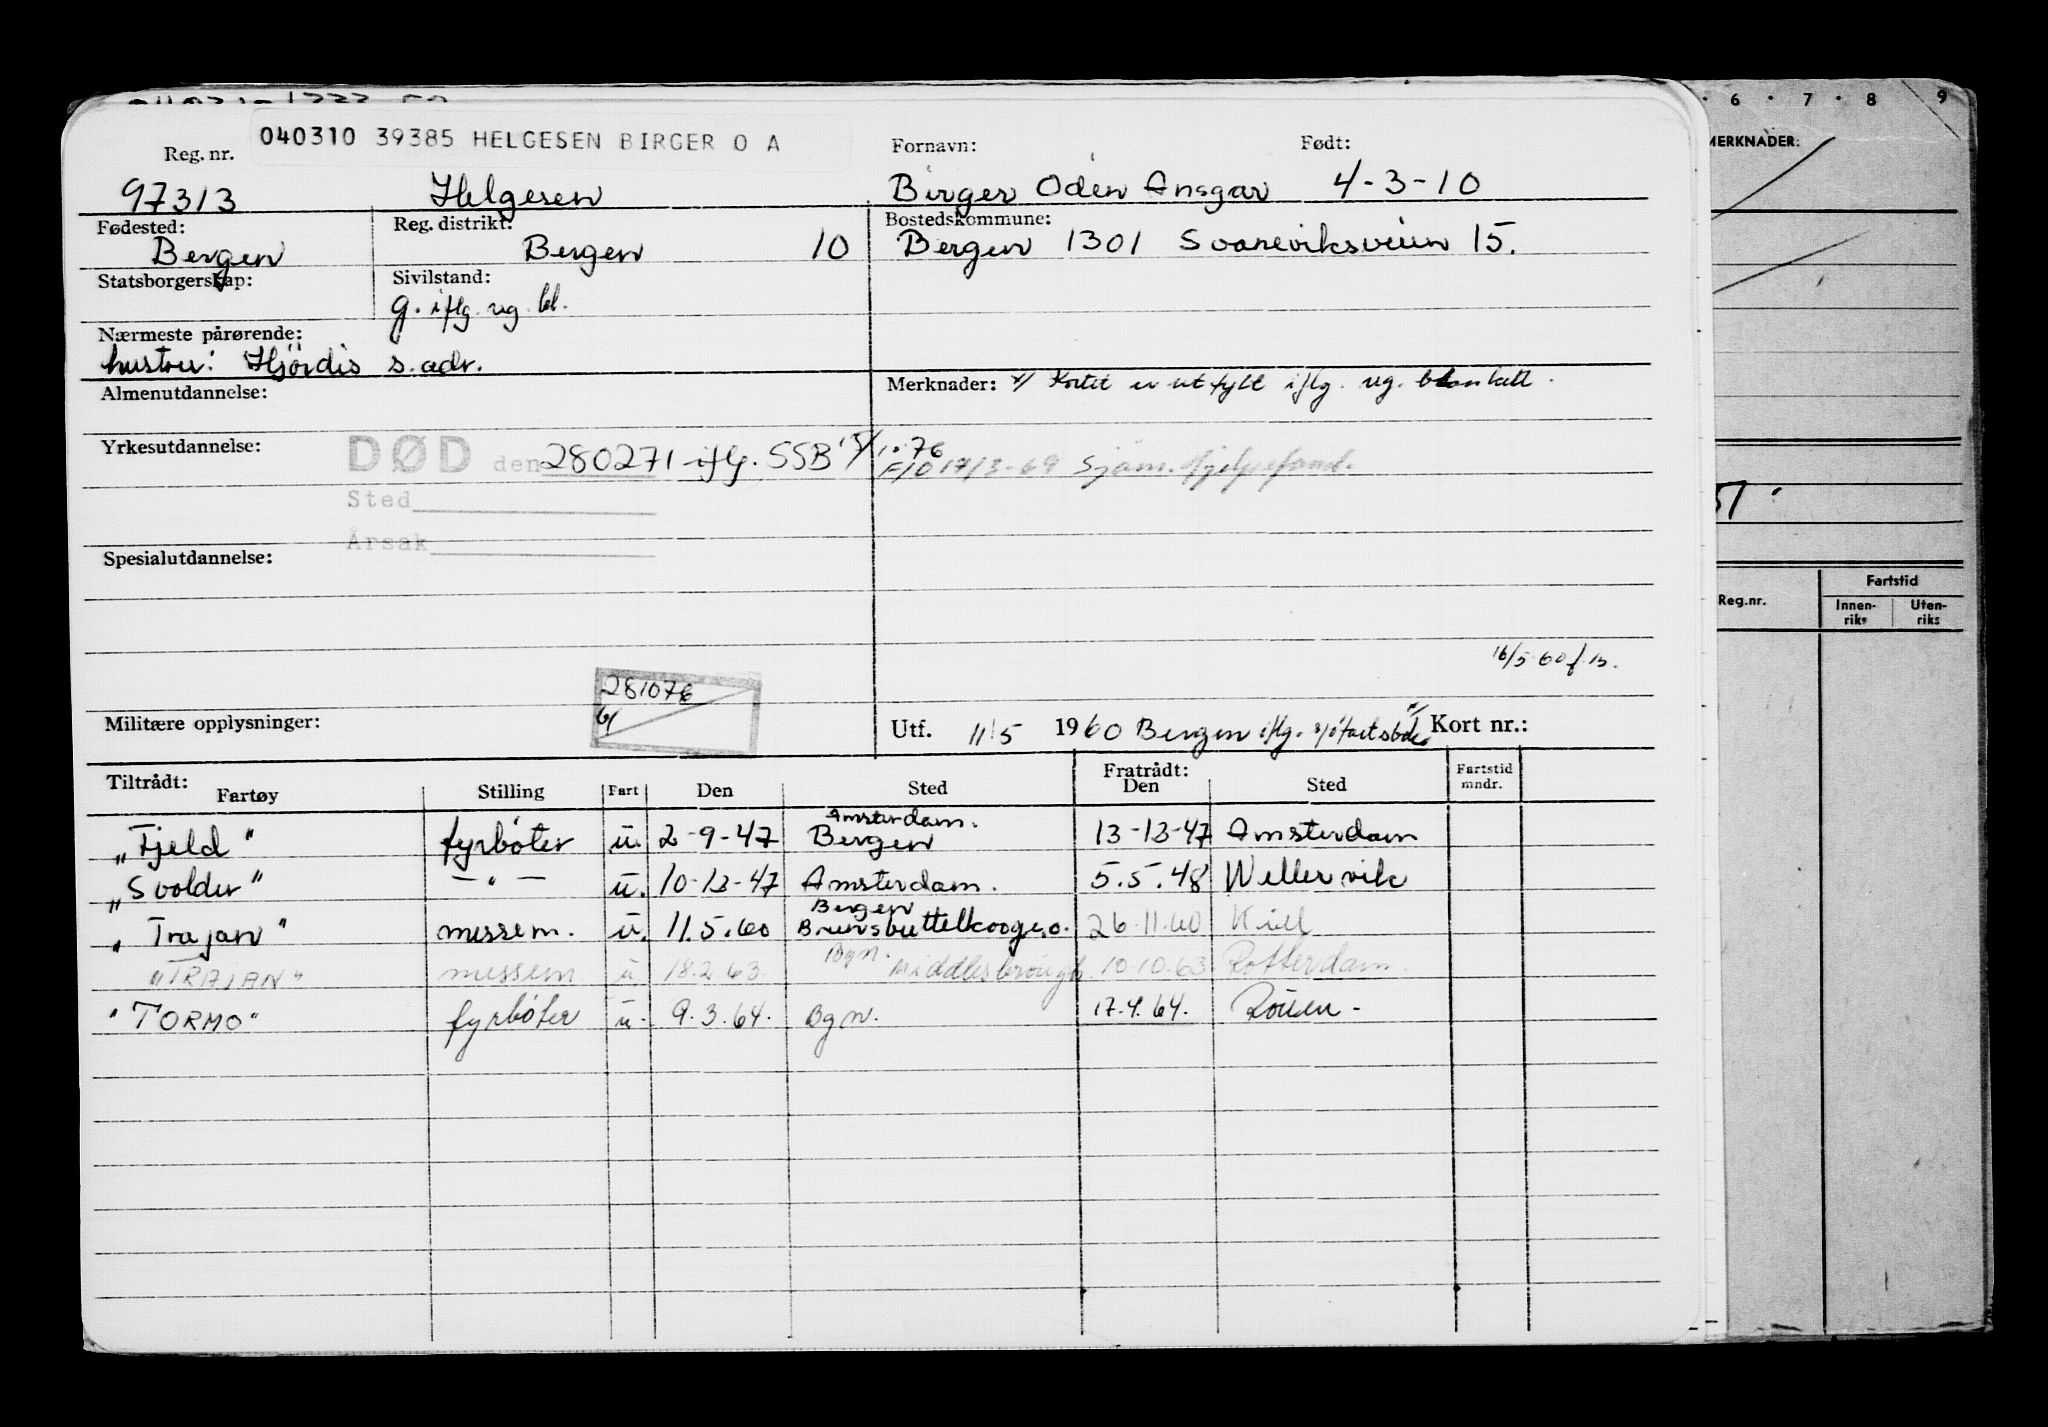 040310 39385 HELGESEN BIRGER O A
Reg. nr. Fornavn: Født:
97313 Helgesen Birger Oden Ansgar 4-3-10
Fødested: Reg. distrikt: Bostedskommune:
Bergen Bergen 10 Bergen 1301 Svaneviksveien 15.
Statsborgerskap: Sivilstand:
g. iflg. rg. bl.
Nærmeste pårørende:
hustru: Hjördis s. adr.
Almenutdannelse: Merknader: x/ Kortet er utfylt iflg. rg. blankett.
Yrkesutdannelse: DØD den 280271 iflg. SSB 5/10-76
F/O 17/3-69 Sjøm. hjelpefond.
Sted
Årsak
Spesialutdannelse:
16/5-60 f.B.
281076
Militære opplysninger: Utf. 11/5 1960 Bergen iflg. sjöfartsbok x/ Kort nr.:
Tiltrådt: Fratrådt:
Fartøy Stilling Fart Den Sted Den Sted Fartstid mndr.
Amsterdam.
„Fjeld" fyrböter u. 2-9-47 Bergen 13-12-47 Amsterdam
„Svolder" — " — u. 10-12-47 Amsterdam. 5.5.48 Wellervik
Bergen
„Trajan" messem. u. 11.5.60 Brunsbüttelkoog e.o. 26.11.60 Kiel
Bgn.
"TRAJAN" messem u 18.2.63. Middlesbrough 10.10.63. Rotterdam.
"TORMO" fyrböter u. 9.3.64. Bgn. 17.4.64. Rouen -
6 · 7 · 8 9
MERKNADER:
51
Reg.nr. Fartstid
Innen-riks Uten-riks